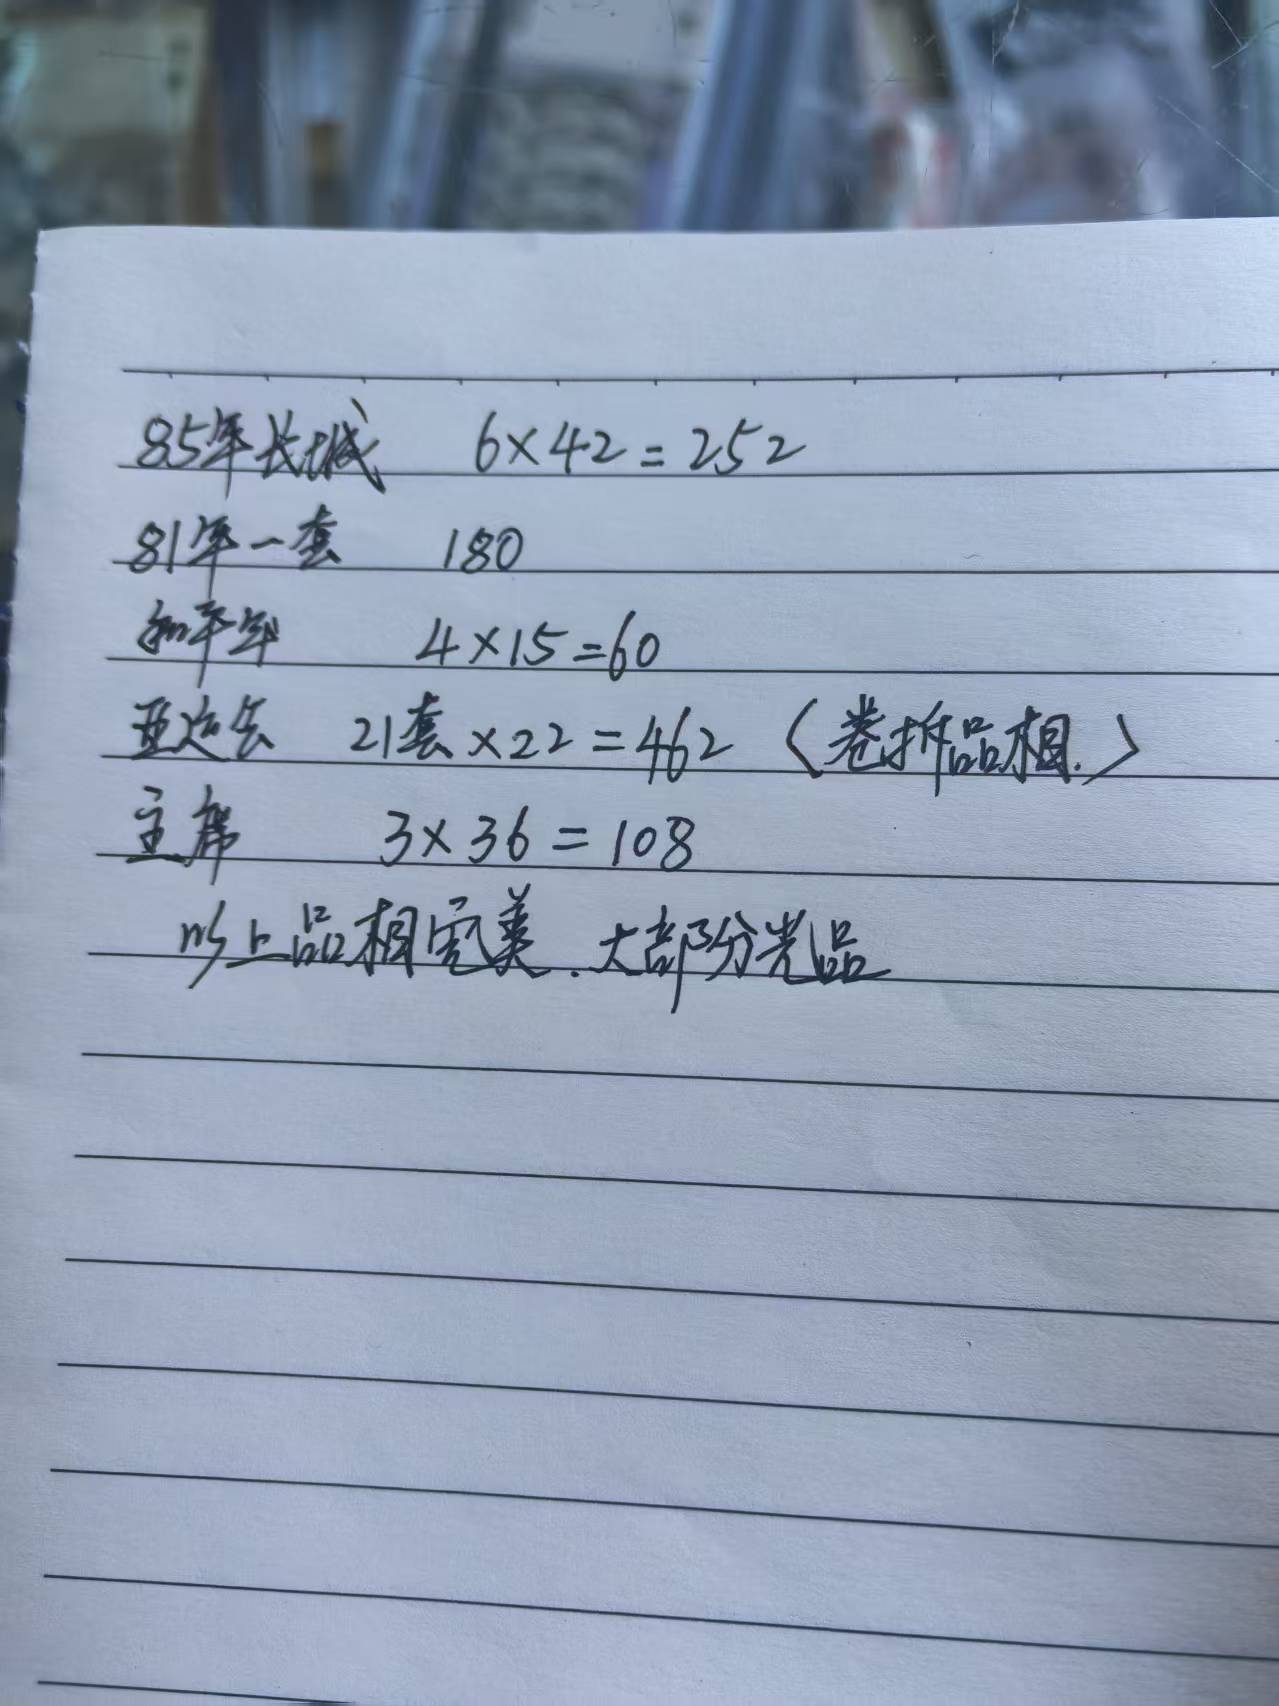 85年长城 6×42=252
81年一套 180
和平年 4×15=60
亚运会 21套×22=462 (卷拆品相.)
主席 3×36=108
以上品相完美.大部分光品